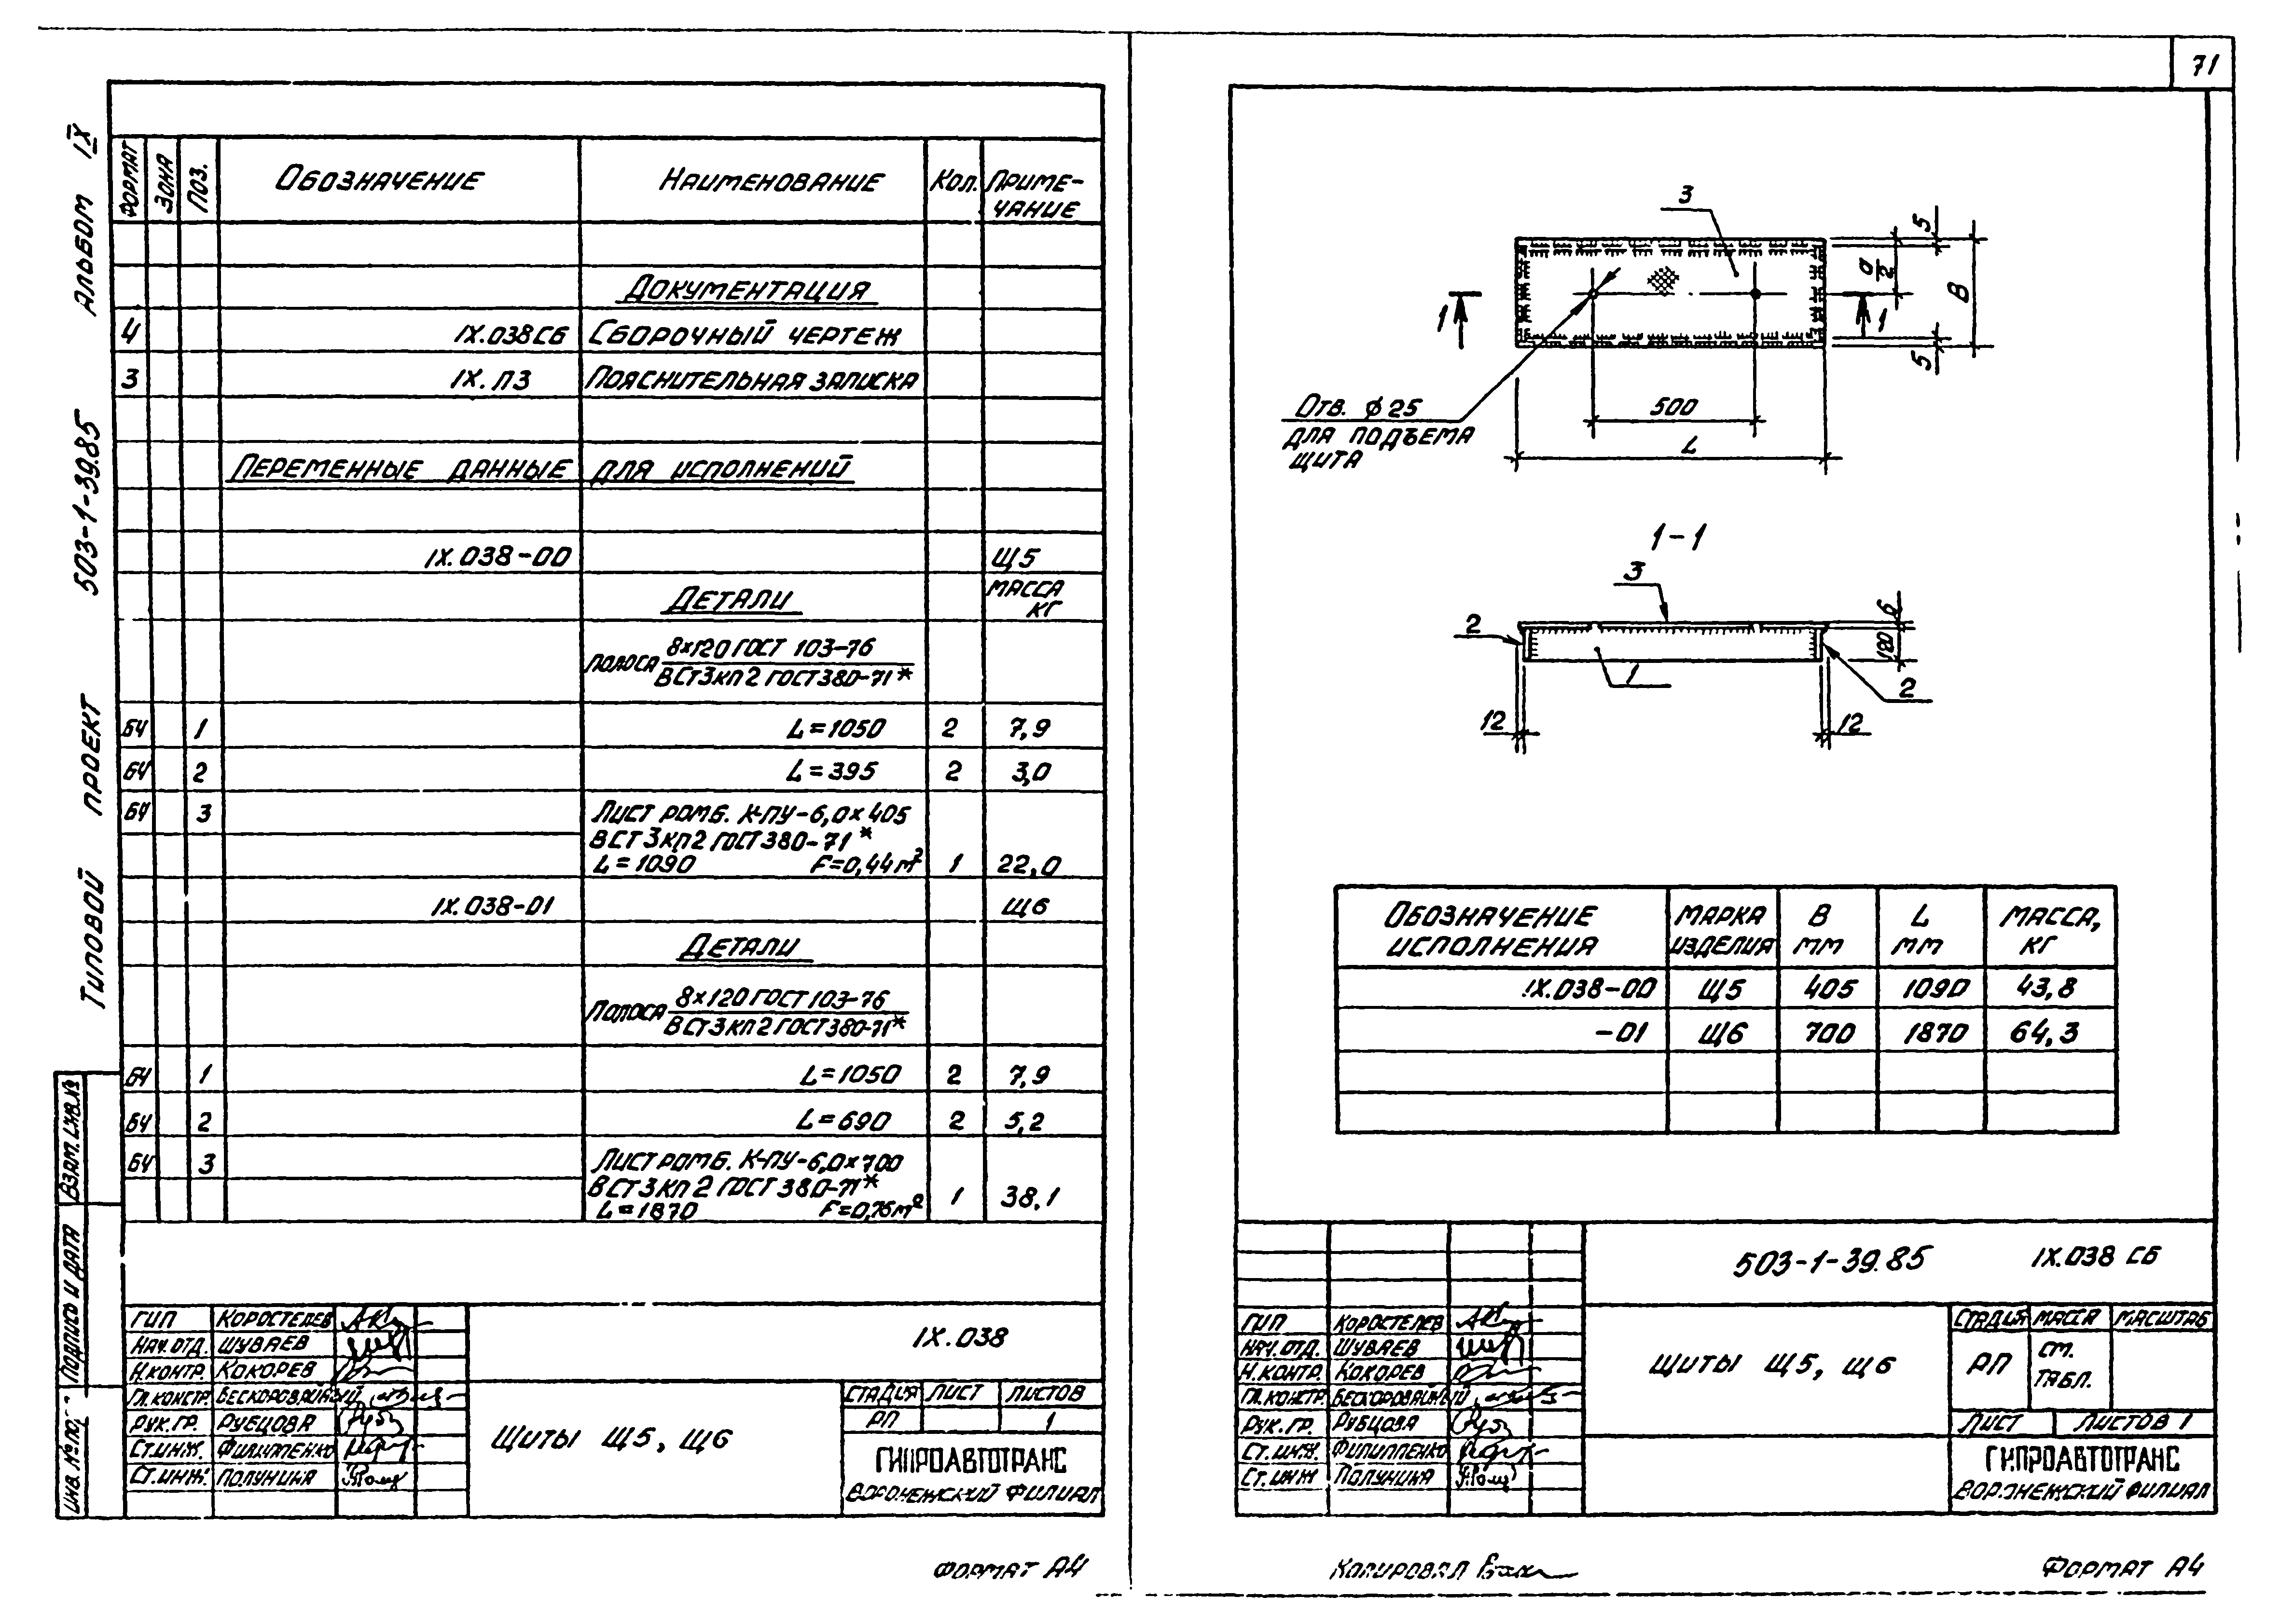 71
Альбом IX
503-1-39.85
Типовой проект
Взам. инв.№
Подпись и дата
Инв. № по
Формат Зона Поз. Обозначение Наименование Кол. Приме-
чание
Документация
4 IX.038СБ Сборочный чертеж
3 IX.ПЗ Пояснительная записка
Переменные данные для исполнений
IX.038-00 Щ5
Детали Масса
кг
Полоса 8×120 ГОСТ 103-76
ВСт3кп2 ГОСТ380-71*
БЧ 1 L=1050 2 7,9
БЧ 2 L=395 2 3,0
БЧ 3 Лист ромб. К-ПУ-6,0×405
ВСТ3кп2 ГОСТ380-71*
L=1090 F=0,44м² 1 22,0
IX.038-01 Щ6
Детали
Полоса 8×120 ГОСТ 103-76
ВСт3кп2 ГОСТ380-71*
БЧ 1 L=1050 2 7,9
БЧ 2 L=690 2 5,2
БЧ 3 Лист ромб. К-ПУ-6,0×700
ВСТ3кп2 ГОСТ 380-71*
L=1870 F=0,76м² 1 38,1
ГИП Коростелев
Нач.отд. Шуваев
Н.контр. Кокорев
Гл.констр. Бескоровайный
Рук.гр. Рубцова
Ст.инж. Филиппенко
Ст.инж. Полунина
IX.038
Щиты Щ5, Щ6
Стадия Лист Листов
РП 1
ГИПРОАВТОТРАНС
Воронежский филиал
Формат А4
3
5
a/2
B
5
1 1
Отв. ⌀25
для подъема
щита
500
L
1-1
3
2
6
120
1
2
12
12
Обозначение исполнения Марка изделия B мм L мм Масса, кг
IX.038-00 Щ5 405 1090 43,8
-01 Щ6 700 1870 64,3
503-1-39.85 IX.038 СБ
ГИП Коростелев
Нач.отд. Шуваев
Н.контр. Кокорев
Гл.констр. Бескоровайный
Рук.гр. Рубцова
Ст.инж. Филиппенко
Ст.инж Полунина
Щиты Щ5, Щ6
Стадия Масса Масштаб
РП См.
табл.
Лист Листов 1
ГИПРОАВТОТРАНС
Воронежский филиал
Копировал
Формат А4